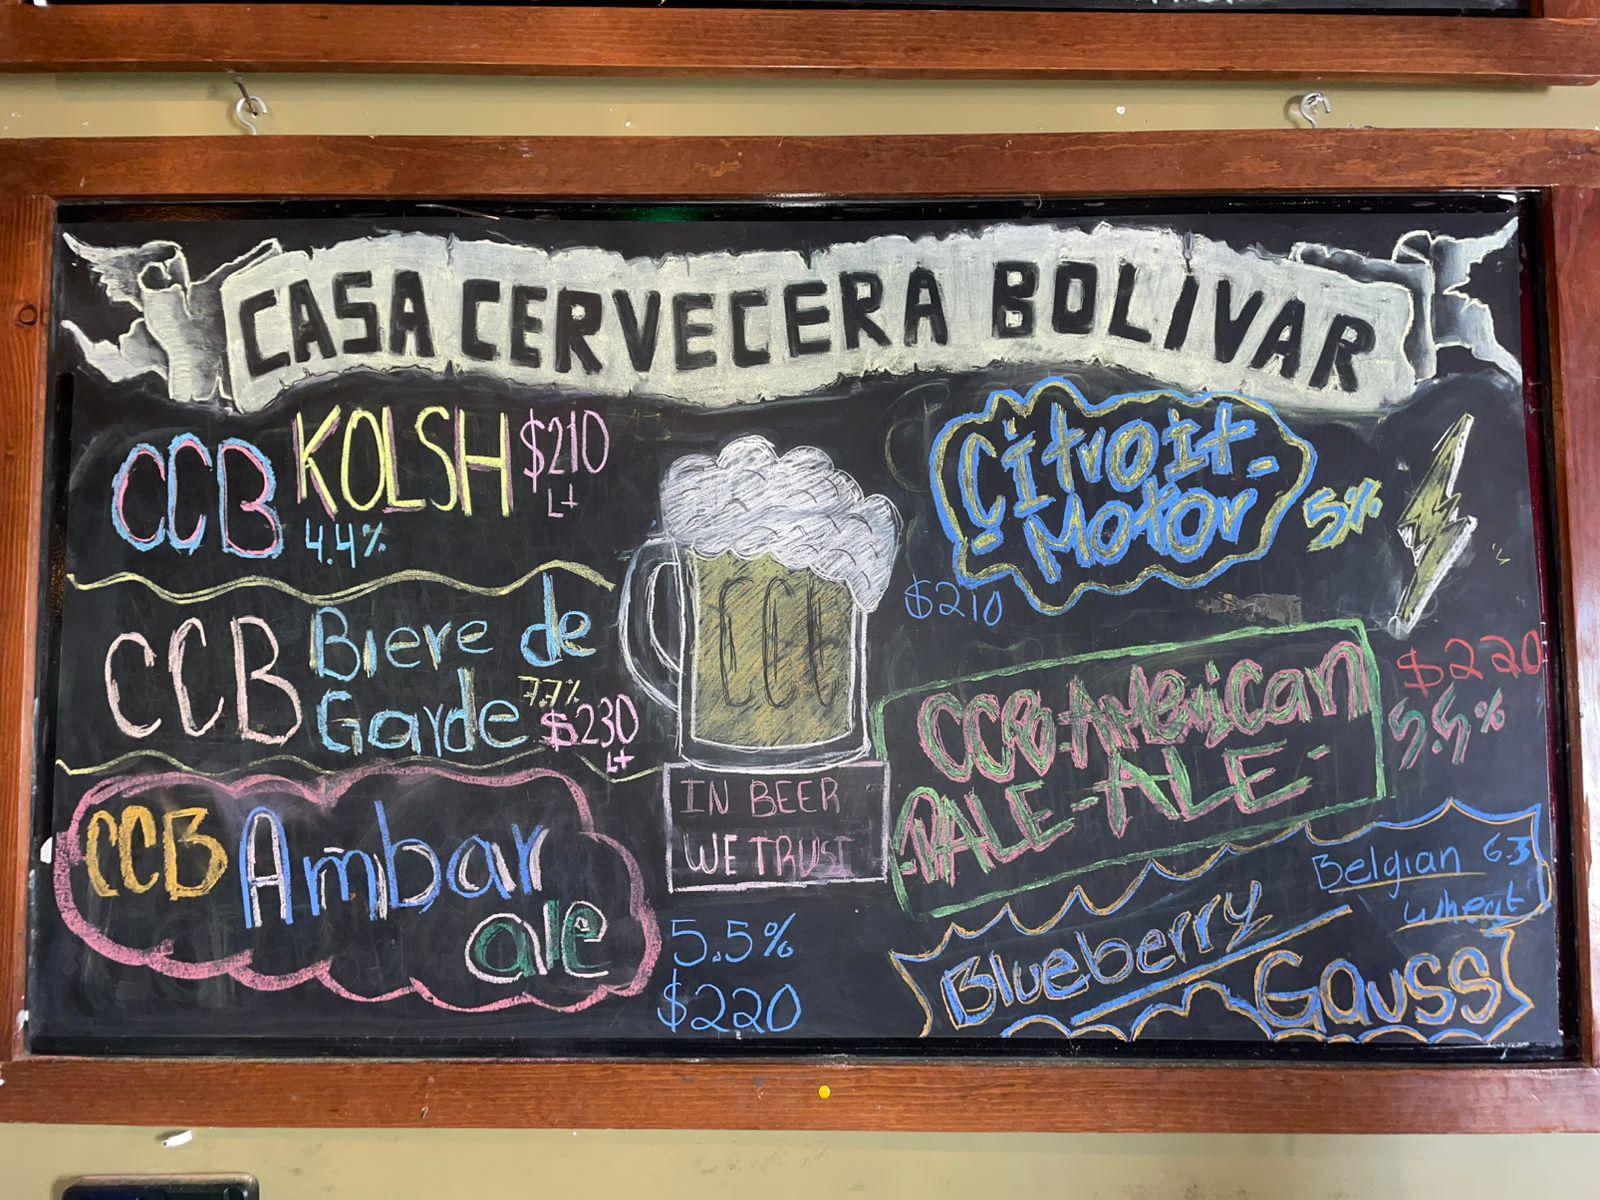 CASA CERVECERA BOLIVAR
CCB KOLSH $210
Lt
4.4%
CCB Biere de
Garde 7.7%
$230
Lt
CCB Ambar
ale
5.5%
$220
IN BEER
WE TRUST
Citroit-
-Motor
5%
$210
CCB-American
-PALE-ALE-
$220
5.5%
Belgian 6.3
wheat
Blueberry
Gauss